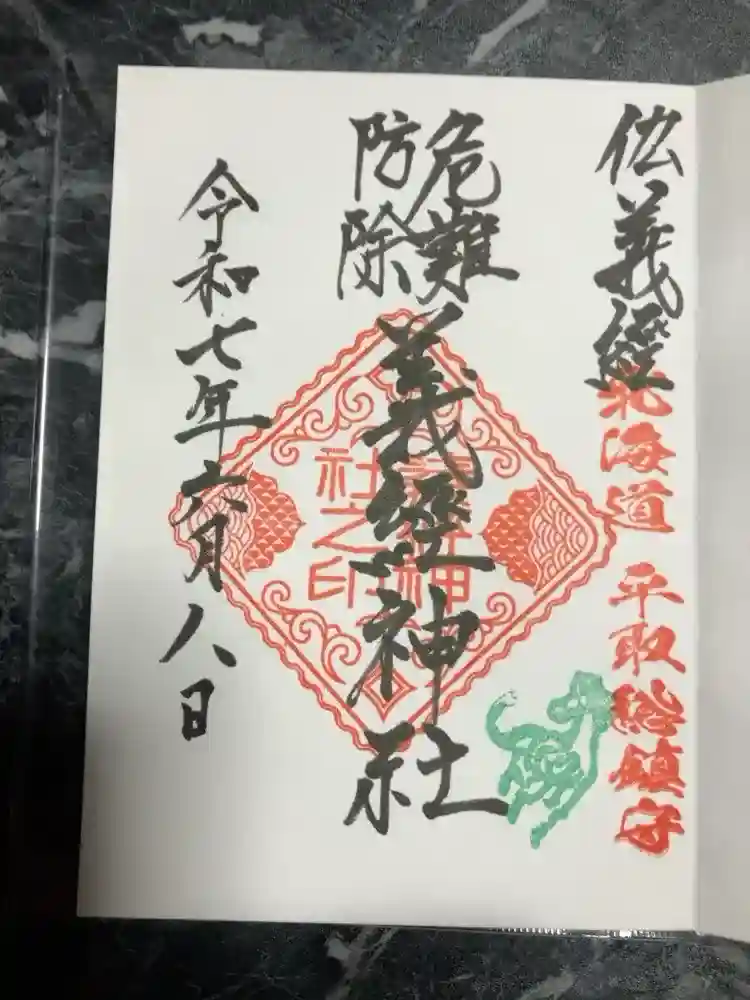 義經
北海道 平取総鎮守
危難
防除
義經神社
社之印
令和七年六月八日